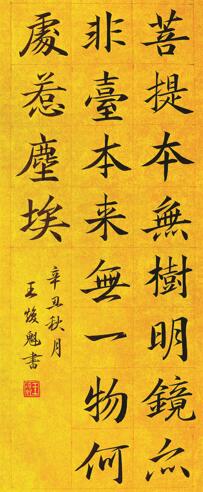 菩提本無樹明鏡亦
非臺本来無一物何
處惹塵埃
辛丑秋月
王俊魁書